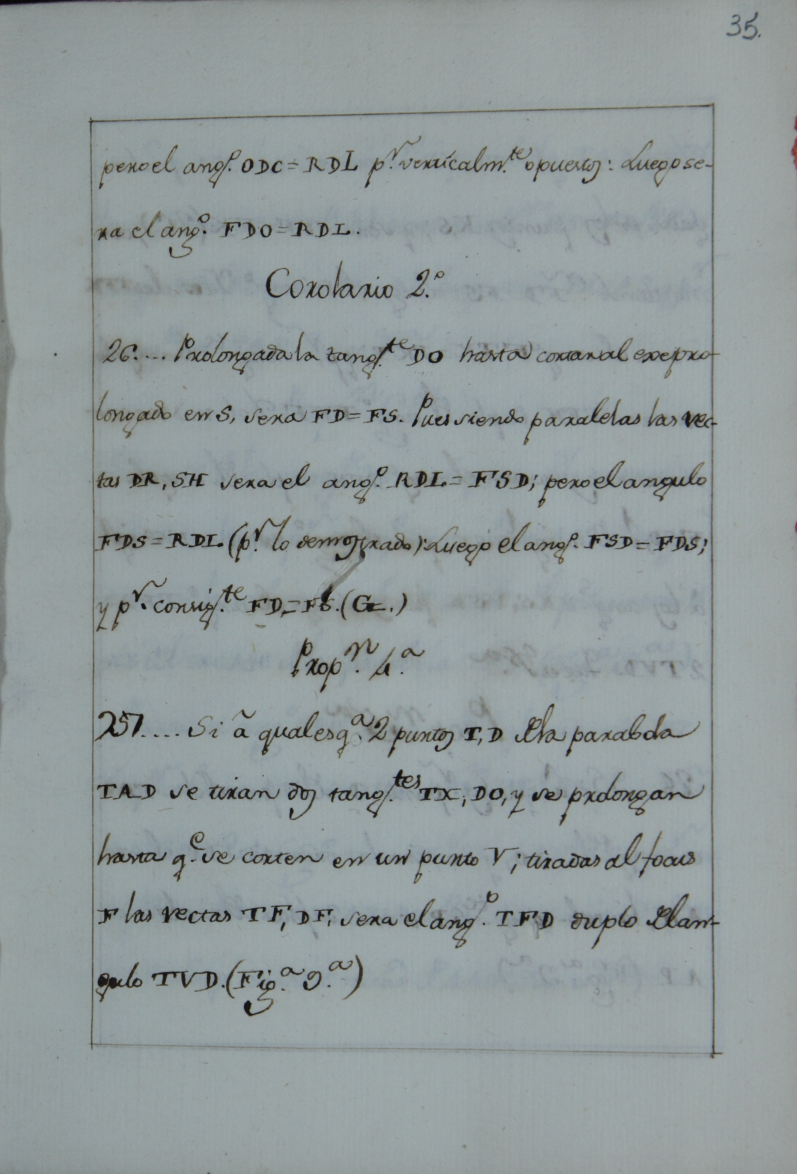 35.
pero el ang.º ODC=RDL p.r verticalm.te opuestos: Luego se-
ra el ang.º FDO=RDL.
Corolario 2.º
26.... Prolongada la tang.te DO hasta cortar al exe pro-
longado en S, sera FD=FS. Pues siendo paralelas las rec-
tas DR, SH sera el ang.º RDL=FSD; pero el angulo
FDS=RDL (p.r lo demostrado): Luego el ang.º FSD=FDS;
y p.r consig.te FD=FS. (G.)
Prop.n 4.a
257.... Si à qualesq.a 2 puntos T, D de la parabola
TAD se tiran dos tang.tes TX, DO, y se prolongan
hasta q.e se corten en un punto V; tiradas al focus
F las rectas TF, DF, sera el ang.º TFD duplo del an-
gulo TVD. (Fig.a 9.a)